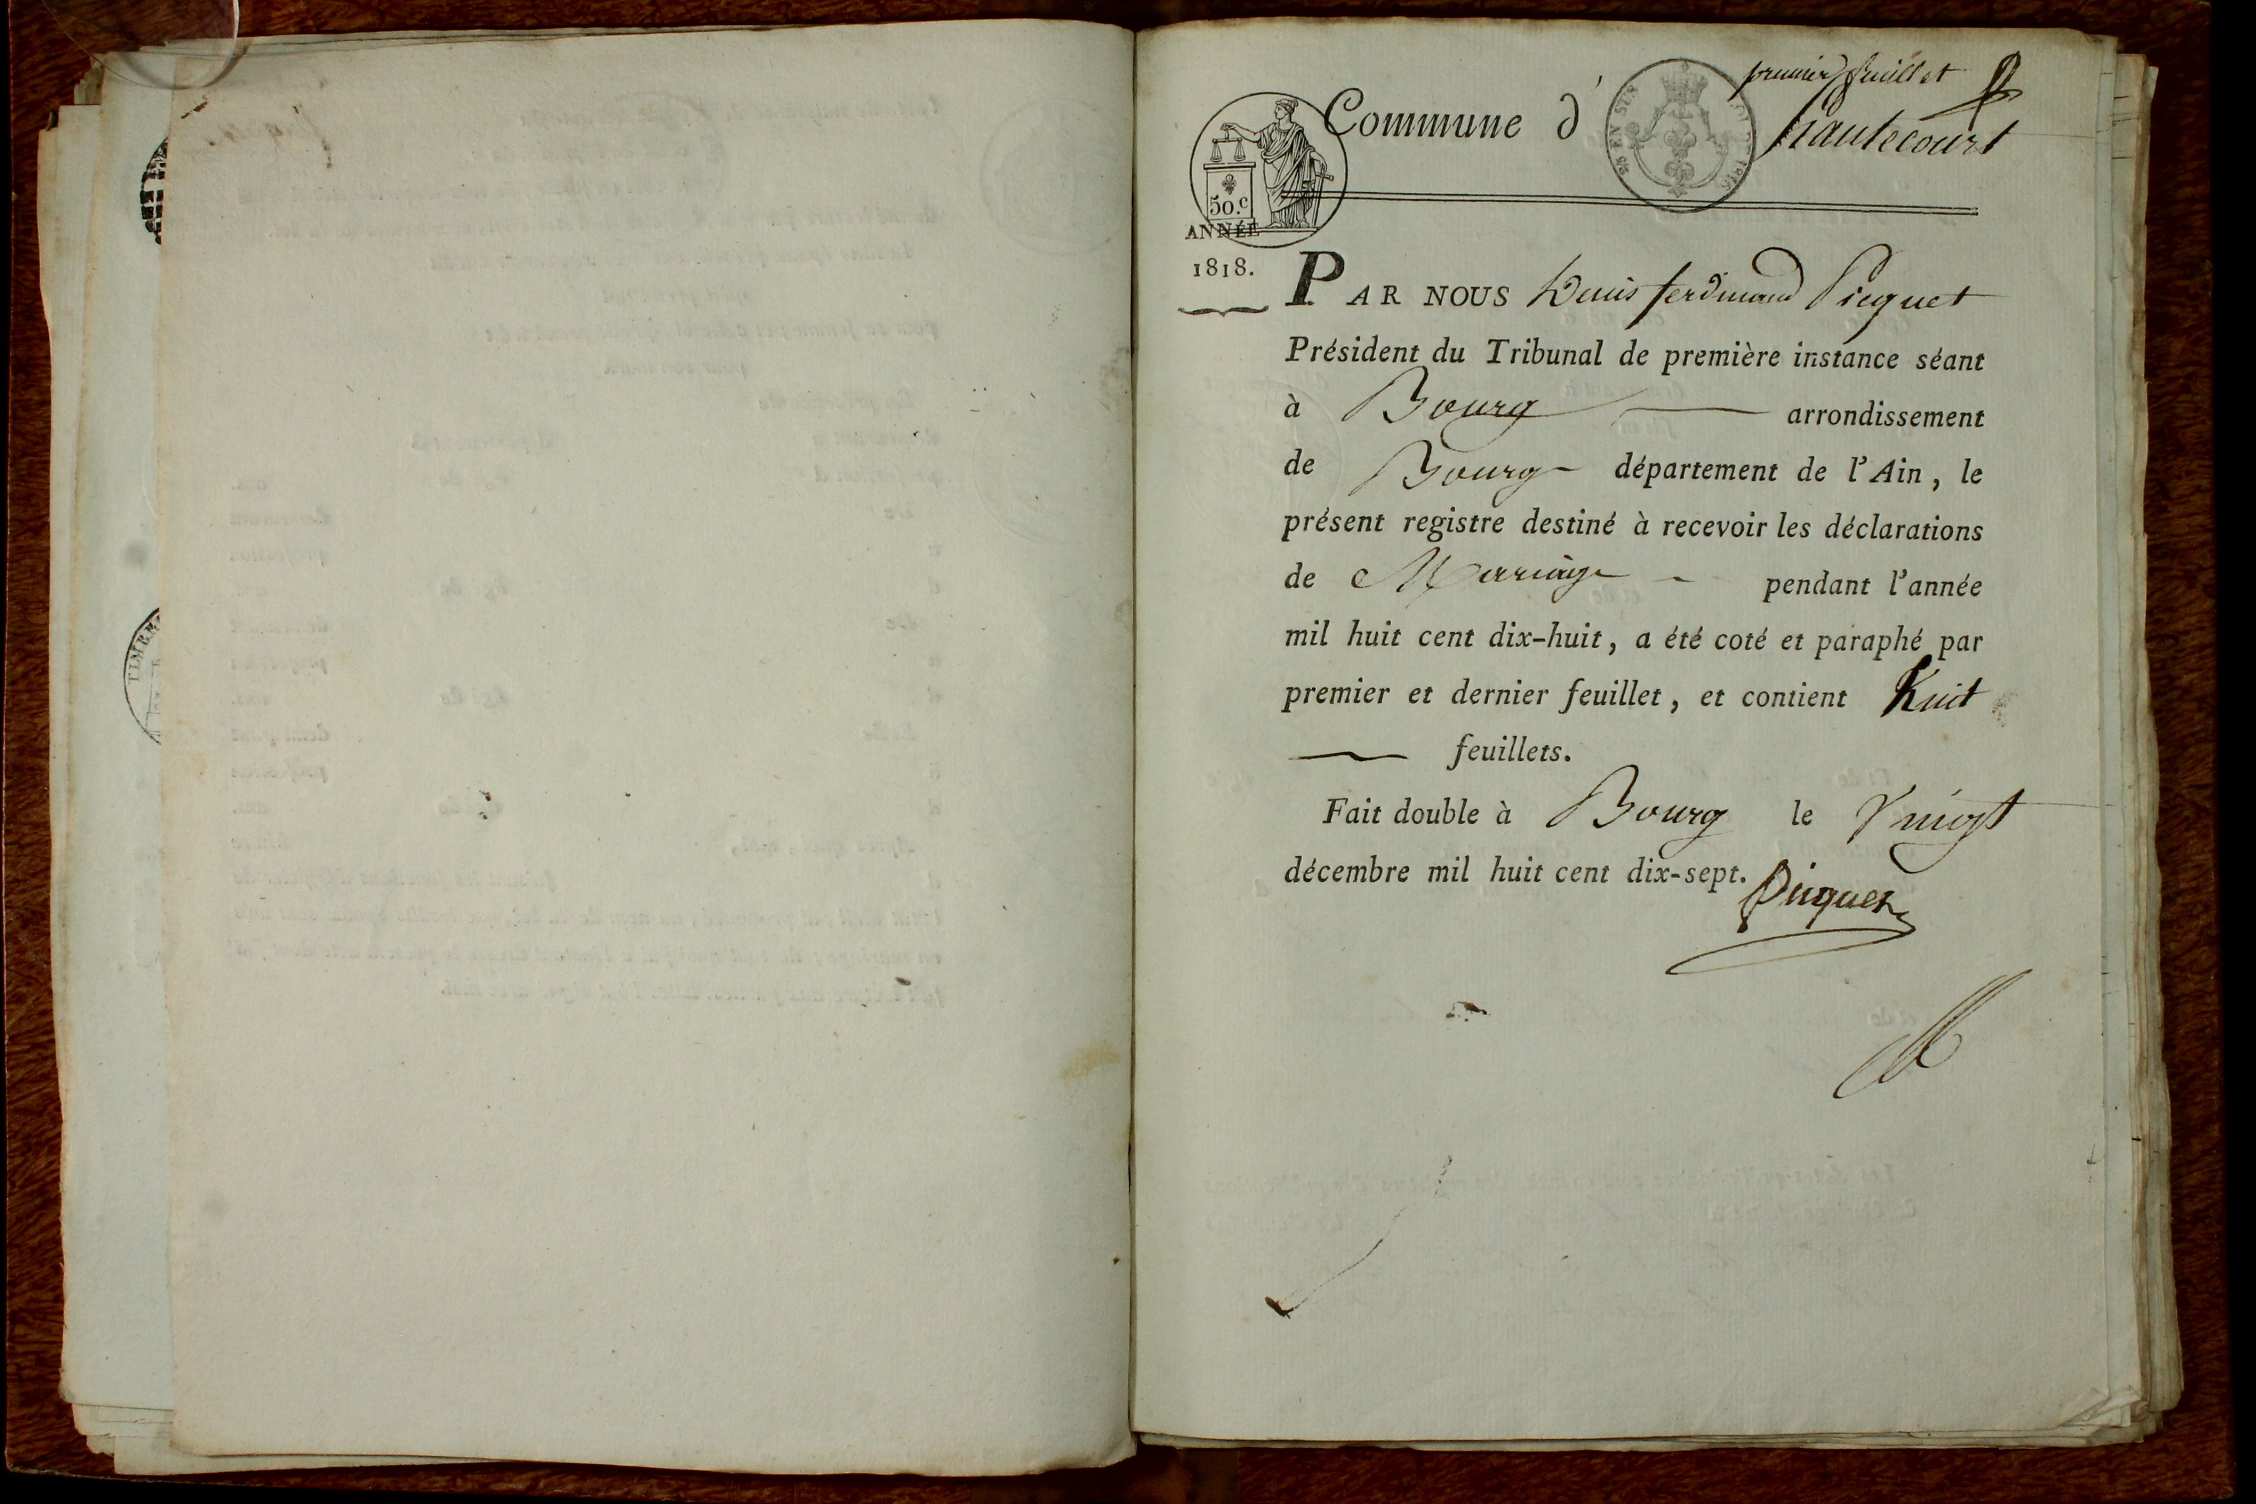 premier feuillet
Commune d' hautecourt
50.c
ANNÉE
1818.
PAR NOUS Denis ferdinand Picquet
Président du Tribunal de première instance séant
à Bourg arrondissement
de Bourg département de l'Ain, le
présent registre destiné à recevoir les déclarations
de Mariage pendant l'année
mil huit cent dix-huit, a été coté et paraphé par
premier et dernier feuillet, et contient huit
feuillets.
Fait double à Bourg le vingt
décembre mil huit cent dix-sept.
Picquet